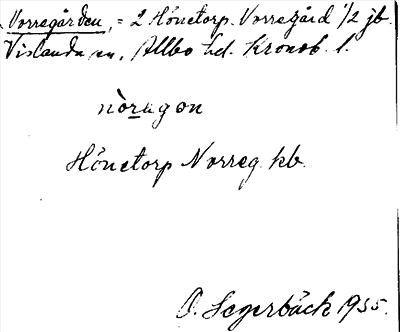 Norregården, = 2 Hönetorp. Norregård 1/2 jb.
Vislanda sn, Allbo hd. Kronob. l.
nòragọn
Hönetorp Norreg. kb.
O. Segerbäck 1955.